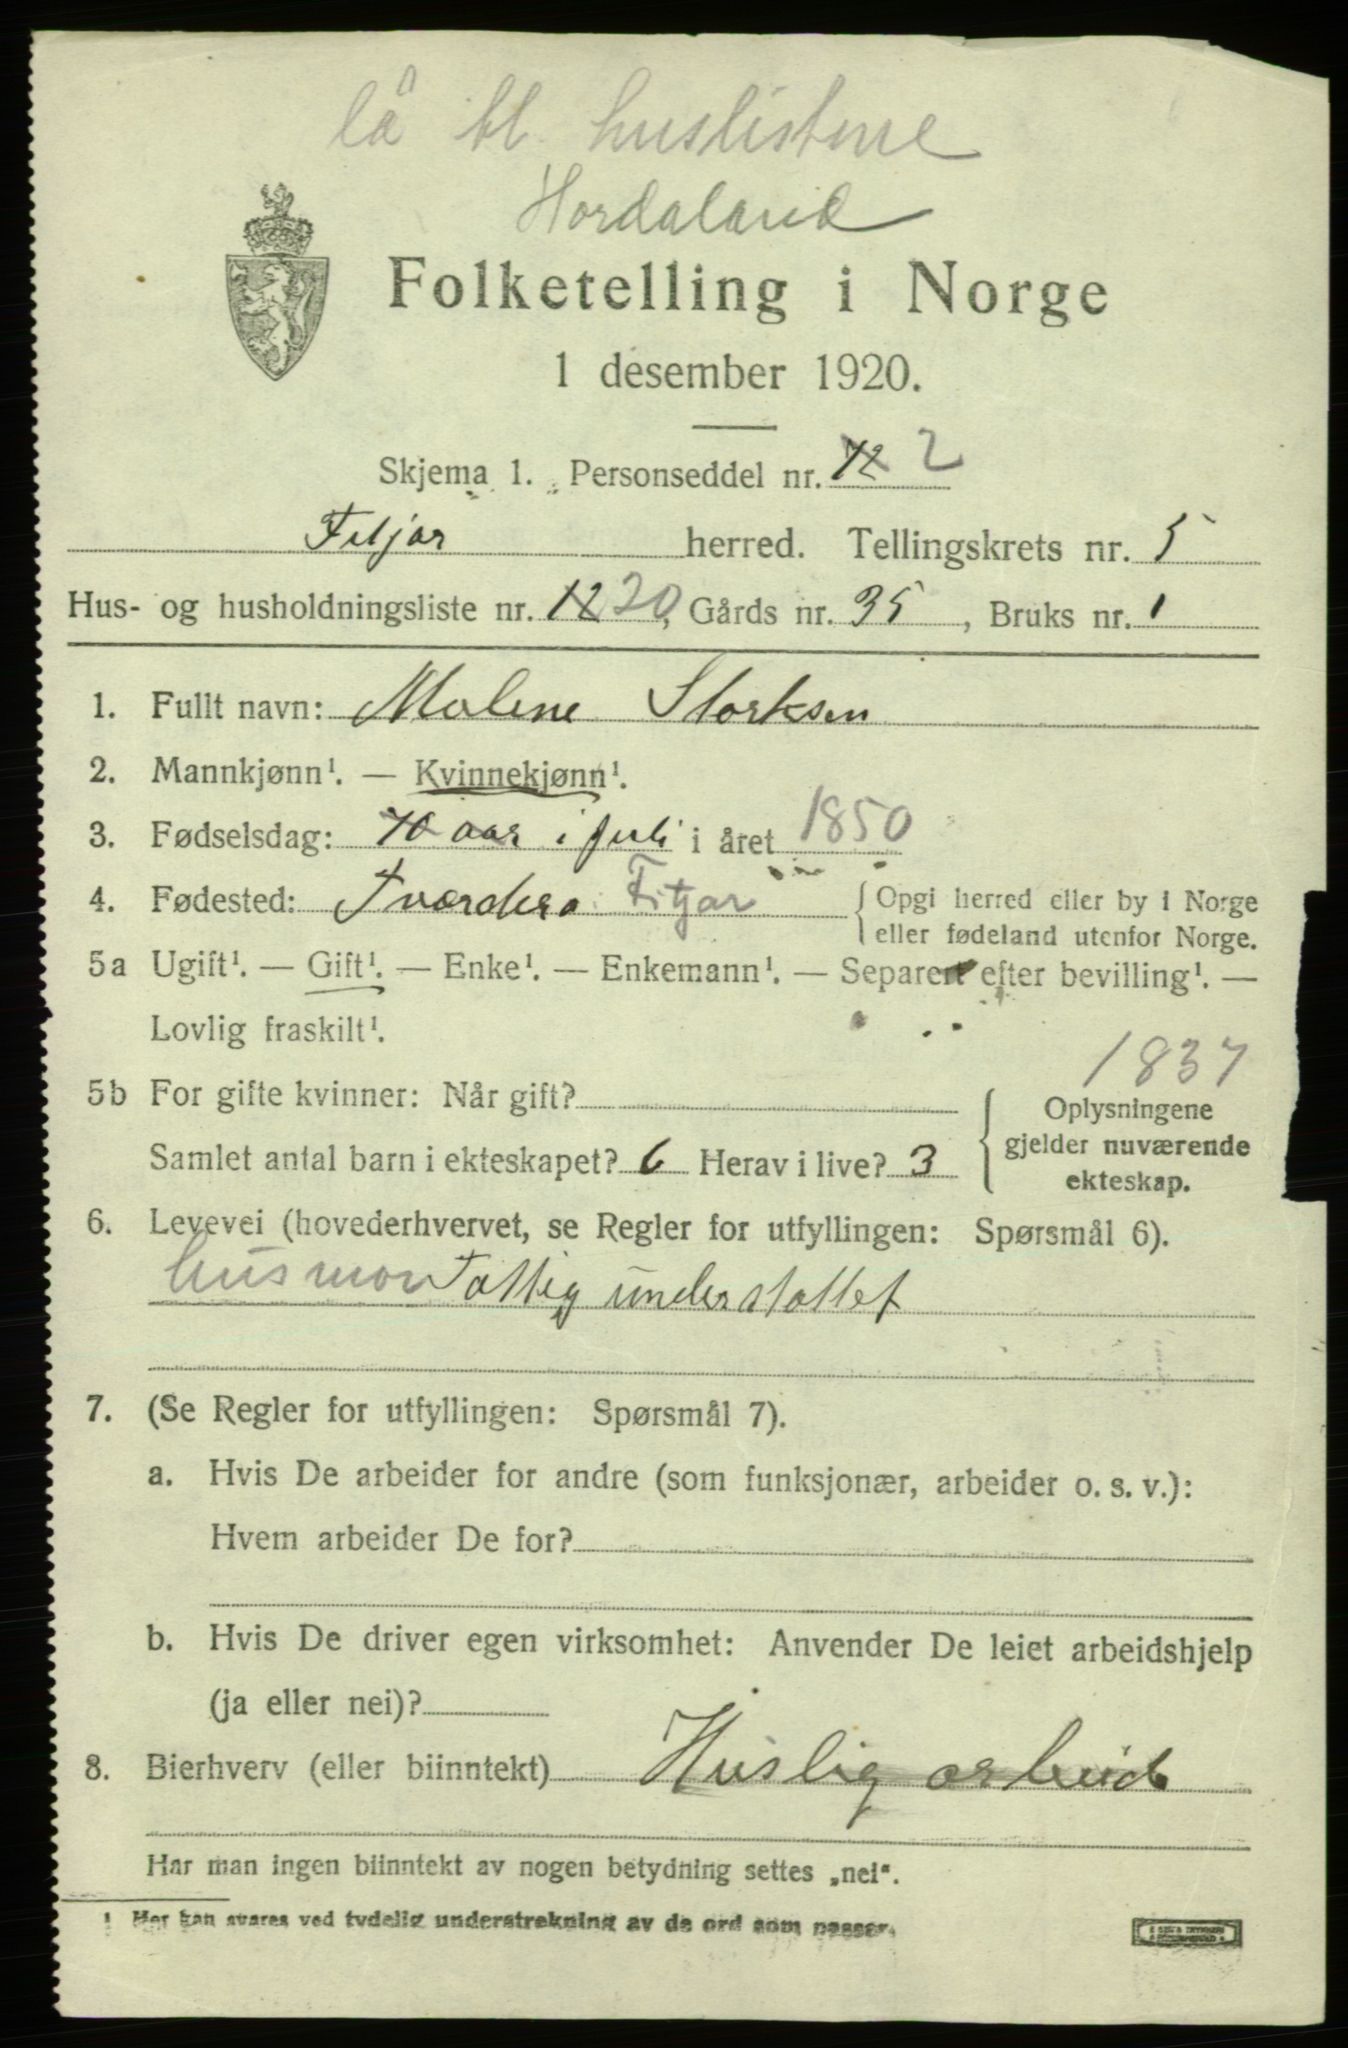 lå bl huslistene
Hordaland
Folketelling i Norge
1 desember 1920.
Skjema 1. Personseddel nr. 12 2
Fitjar herred. Tellingskrets nr. 5
Hus- og husholdningsliste nr. 12 20, Gårds nr. 35, Bruks nr. 1
1. Fullt navn: Malene Storksen
2. Mannkjønn¹. — Kvinnekjønn¹.
3. Fødselsdag: 70 aar i juli i året 1850
4. Fødested: Tværdero Fitjar {Opgi herred eller by i Norge
eller fødeland utenfor Norge.
5a Ugift¹. — Gift¹. — Enke¹. — Enkemann¹. — Separert efter bevilling¹. —
Lovlig fraskilt¹.
1837
5b For gifte kvinner: Når gift? Oplysningene
gjelder nuværende
Samlet antal barn i ekteskapet? 6 Herav i live? 3
ekteskap.
6. Levevei (hovederhvervet, se Regler for utfyllingen: Spørsmål 6).
husmor Fattig understøttet
7. (Se Regler for utfyllingen: Spørsmål 7).
a. Hvis De arbeider for andre (som funksjonær, arbeider o. s. v.):
Hvem arbeider De for?
b. Hvis De driver egen virksomhet: Anvender De leiet arbeidshjelp
(ja eller nei)?
8. Bierhverv (eller biinntekt) Huslig arbeide
Har man ingen biinntekt av nogen betydning settes „nei“.
¹ Her kan svares ved tydelig understrekning av de ord som passer.